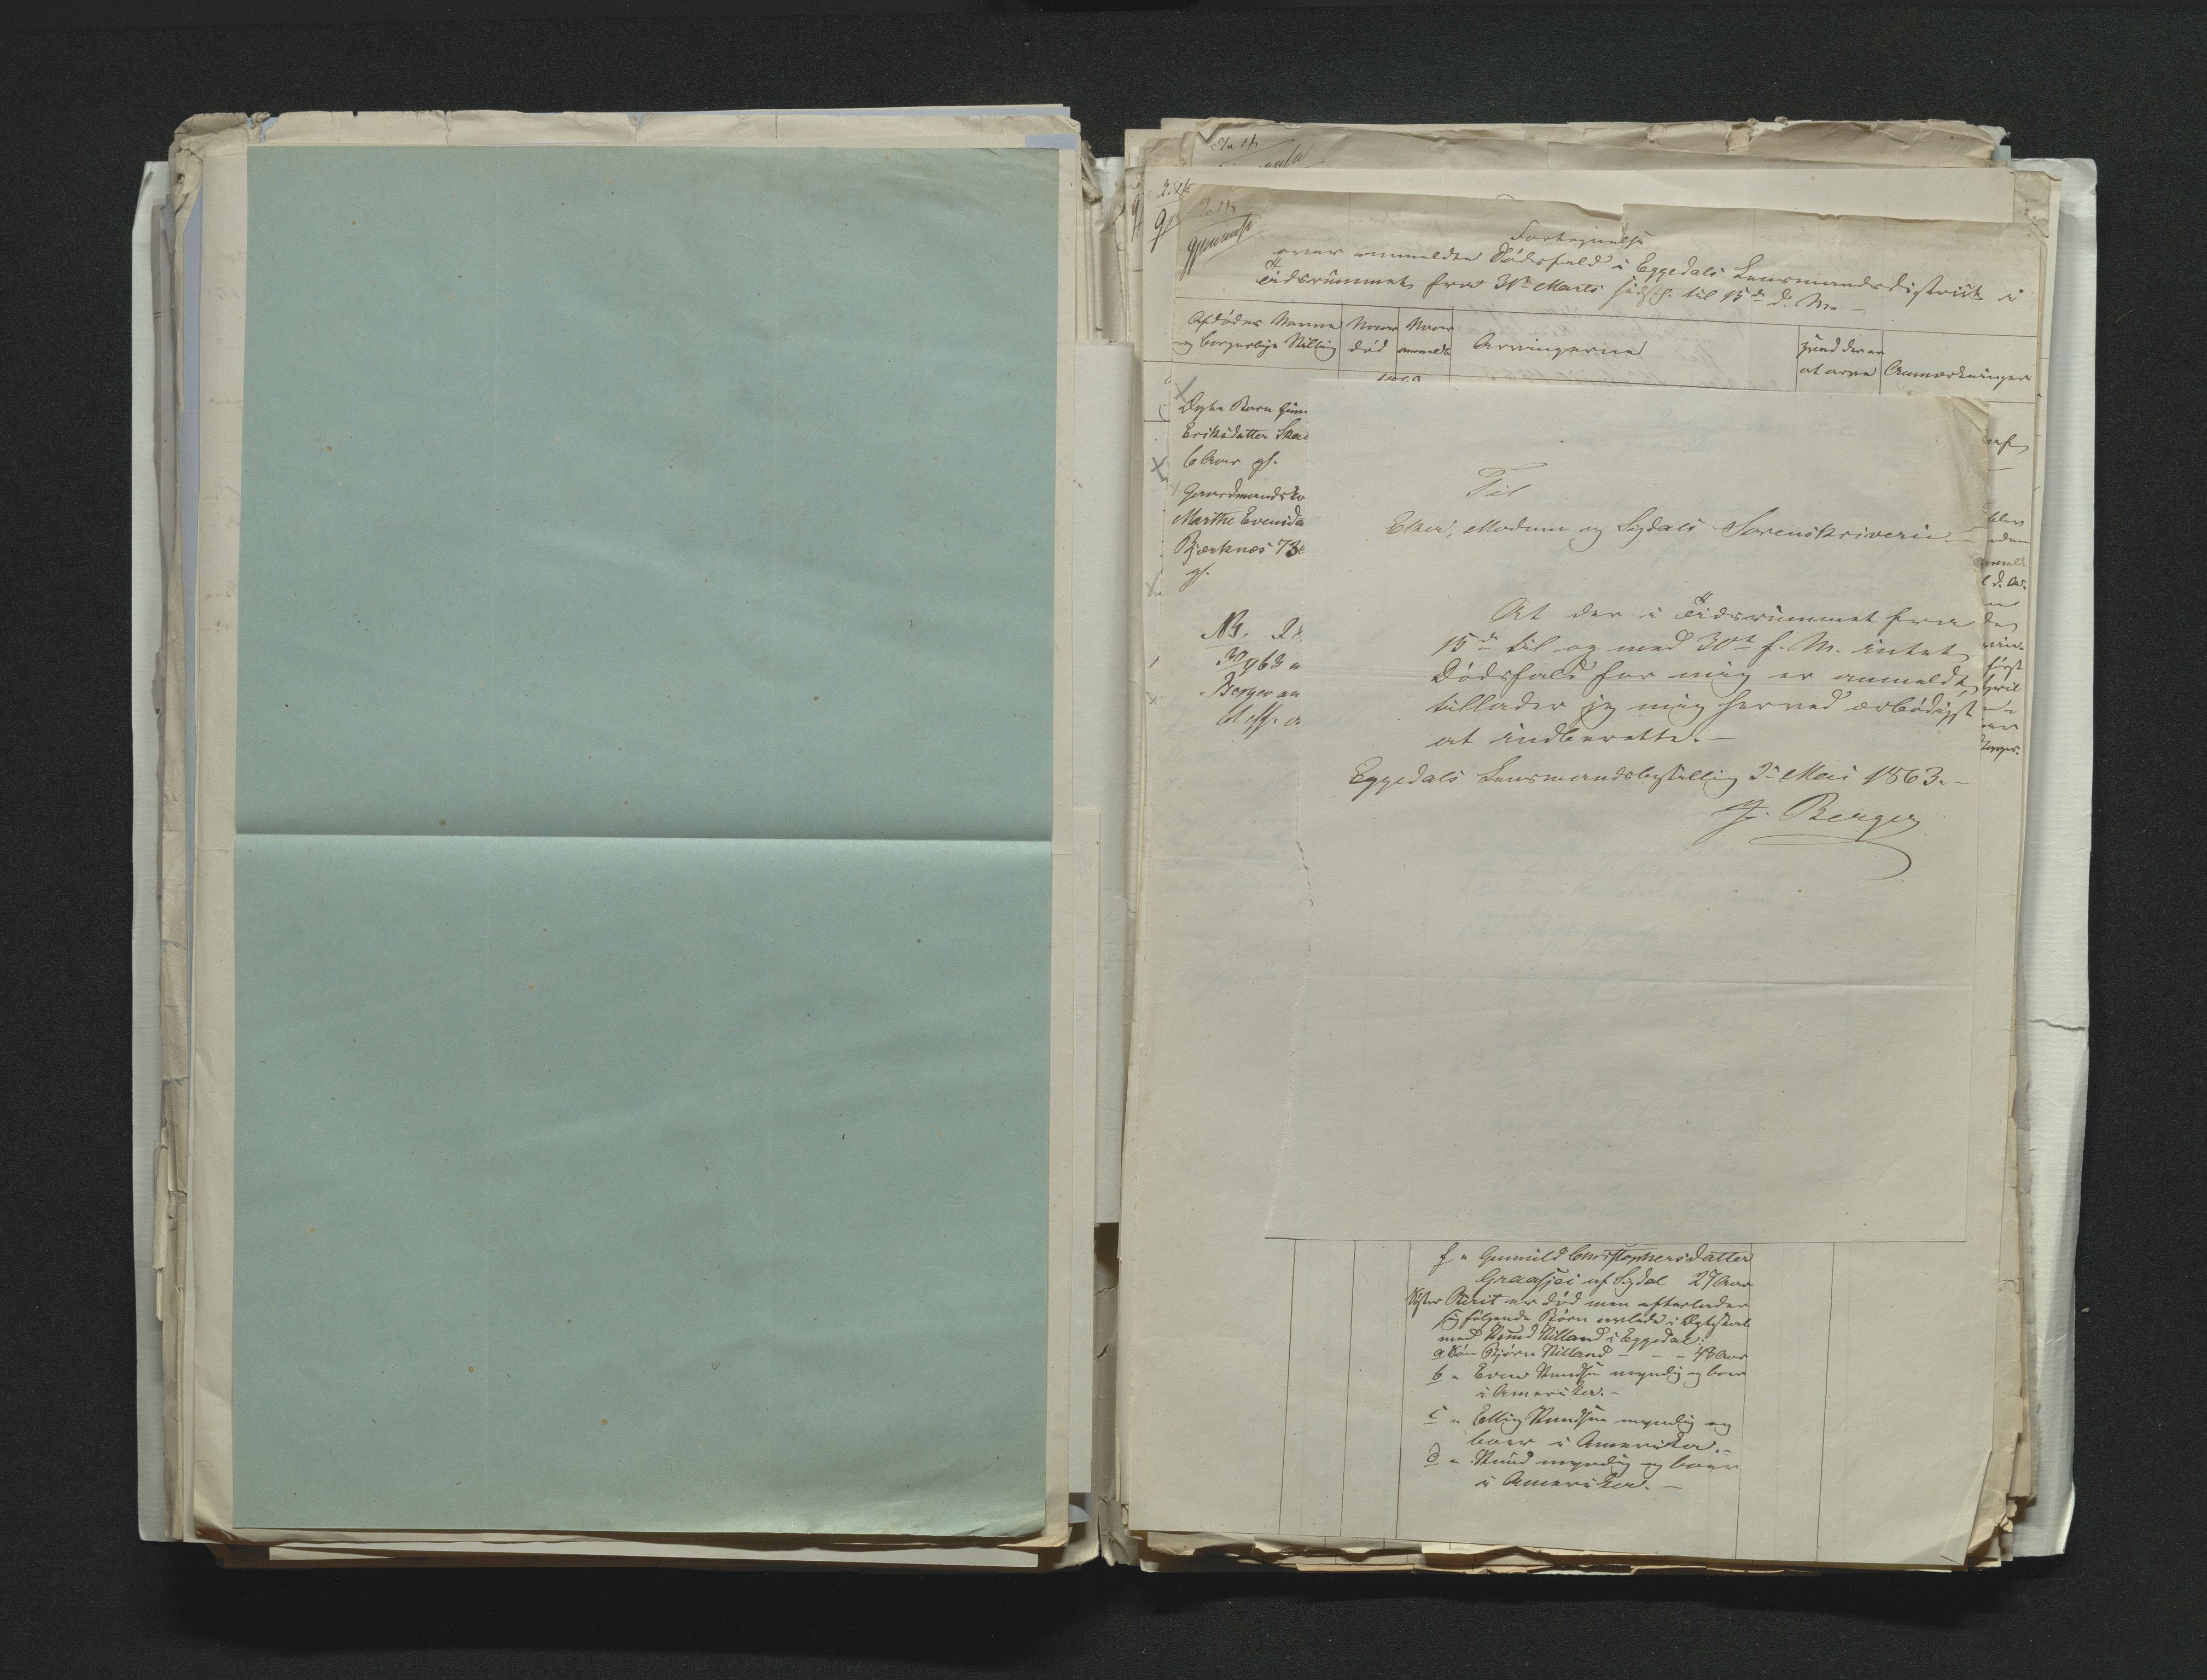 Fortegnelse
over anmeldte Dødsfald i Eggedals Lensmandsdistrikt i
Tidsrummet fra 31te Marts sidstl. til 15de d. M. –
Afdødes Navn
og borgerlige Stilling
Naar
død
Naar
anmeldt
Arvingerne
Hvad der er
at arve
Anmærkninger
Ægte Barn Gun
Eriksdatter Ska
6 Aar gl.
Gaardmandsko
Marthe Evensda
Bjerknæs 73
gl.
NB.
30/4 63
Berger an
Til
Eker, Modum og Sigdals Sorenskriveri. –
At der i Tidsrummet fra
15de til og med 30te f. M. intet
Dødsfald for mig er anmeldt,
tillader jeg mig herved ærbødigst
at indberette. –
Eggedals Lensmandsbestilling 2de Mai 1863. –
J. Berger
f " Gunnild Christophersdatter
Graasjei af Sigdal 27 Aar
Søster Aarit er død men efterlader
sig følgende Børn avlede i Ægteskab
med Knud Nilland i Eggedal:
a Søn Bjørn Nilland – – – 48 Aar
b " Even Knudsen myndig og boer
i Amerika. –
c " Elling Knudsen myndig og
boer i Amerika. –
d " Knud myndig og boer
i Amerika. –